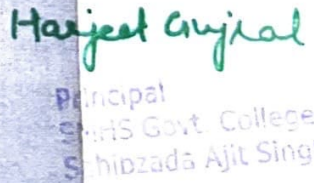 Harjeet Gujral
Principal
SMHS Govt. College
Sahibzada Ajit Sing